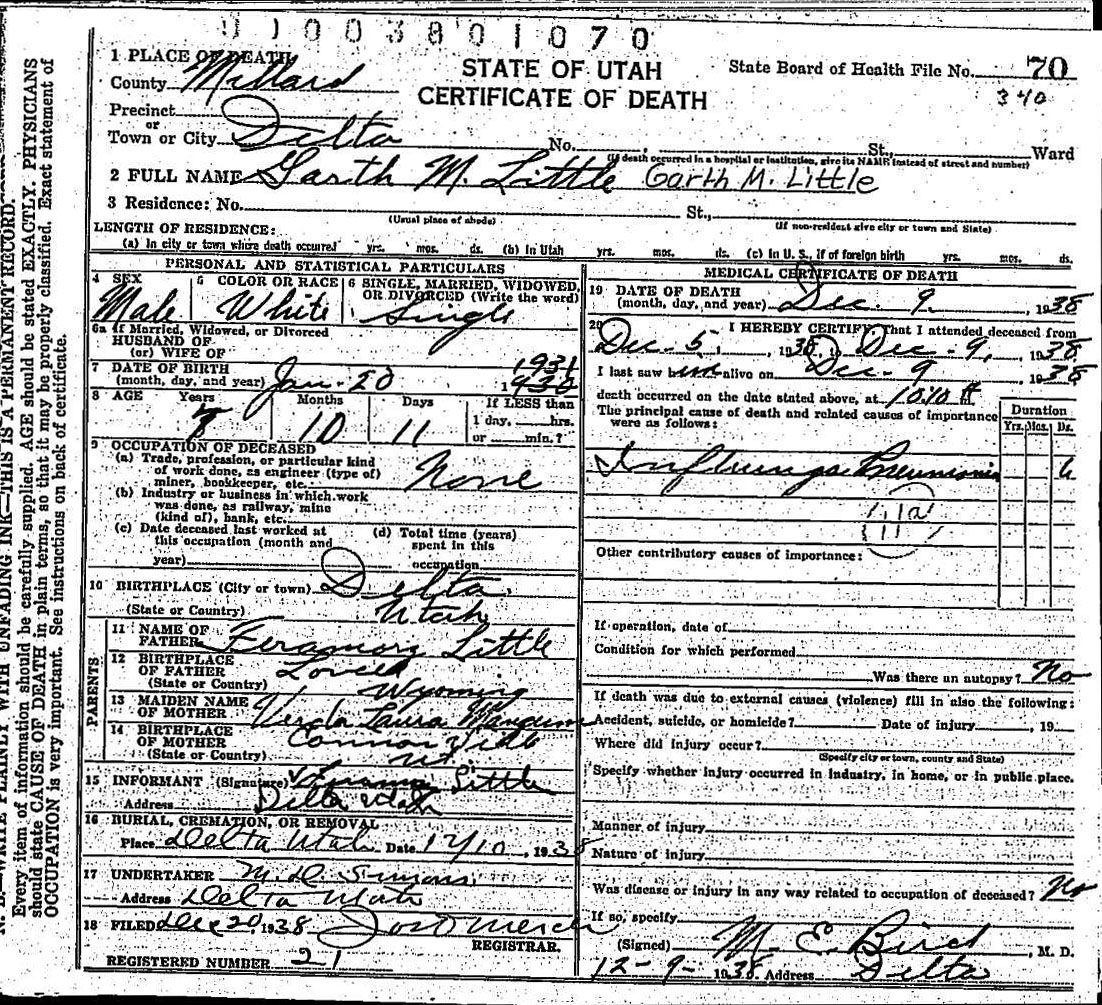 1 1 0 0 3 8 0 1 0 7 0
1 PLACE OF DEATH
County Millard
STATE OF UTAH
CERTIFICATE OF DEATH
State Board of Health File No. 70
340
Precinct
or
Town or City Delta No. , St., Ward
(If death occurred in a hospital or institution, give its NAME instead of street and number)
2 FULL NAME Garth M. Little Garth M. Little
3 Residence: No. St.,
(Usual place of abode) (If non-resident give city or town and State)
LENGTH OF RESIDENCE:
(a) In city or town where death occurred yrs. mos. ds. (b) In Utah yrs. mos. ds. (c) In U. S., if of foreign birth yrs. mos. ds.
PERSONAL AND STATISTICAL PARTICULARS
4 SEX Male
5 COLOR OR RACE White
6 SINGLE, MARRIED, WIDOWED, OR DIVORCED (Write the word) Single
6a If Married, Widowed, or Divorced
HUSBAND OF
(or) WIFE OF
7 DATE OF BIRTH 1931
(month, day, and year) Jan-20 1930
8 AGE Years Months Days If LESS than
7 10 11 1 day, hrs.
or min.?
9 OCCUPATION OF DECEASED
(a) Trade, profession, or particular kind
of work done, as engineer (type of)
miner, bookkeeper, etc. None
(b) Industry or business in which work
was done, as railway, mine
(kind of), bank, etc.
(c) Date deceased last worked at
this occupation (month and
year)
(d) Total time (years)
spent in this
occupation
10 BIRTHPLACE (City or town) Delta,
(State or Country) Utah
PARENTS
11 NAME OF
FATHER Feramorz Little
12 BIRTHPLACE
OF FATHER Lovell
(State or Country) Wyoming
13 MAIDEN NAME
OF MOTHER Verda Laura Mangum
14 BIRTHPLACE
OF MOTHER
(State or Country) Ut.
15 INFORMANT (Signature) Little
Address Delta Utah
16 BURIAL, CREMATION, OR REMOVAL
Place Delta Utah Date 12/10, 1938
17 UNDERTAKER
Address Delta Utah
18 FILED Dec 20, 1938
REGISTRAR.
REGISTERED NUMBER 21
MEDICAL CERTIFICATE OF DEATH
19 DATE OF DEATH
(month, day, and year) Dec. 9, 1938
20 I HEREBY CERTIFY, That I attended deceased from
Dec. 5, 1938, to Dec. 9, 1938
I last saw him alive on Dec-9, 1938
death occurred on the date stated above, at 10:10
The principal cause of death and related causes of importance
were as follows:
Duration
Yrs. Mos. Ds.
Influenza Pneumonia 6
11a
11
Other contributory causes of importance:
If operation, date of
Condition for which performed
Was there an autopsy? No
If death was due to external causes (violence) fill in also the following:
Accident, suicide, or homicide? Date of injury , 19
Where did injury occur?
(Specify city or town, county and State)
Specify whether injury occurred in industry, in home, or in public place.
Manner of injury
Nature of injury
Was disease or injury in any way related to occupation of deceased? No
If so, specify
(Signed) M. E. Bird, M. D.
12-9-1938 Address Delta
N. B.—WRITE PLAINLY WITH UNFADING INK—THIS IS A PERMANENT RECORD.
Every item of information should be carefully supplied. AGE should be stated EXACTLY. PHYSICIANS
should state CAUSE OF DEATH in plain terms, so that it may be properly classified. Exact statement of
OCCUPATION is very important. See instructions on back of certificate.